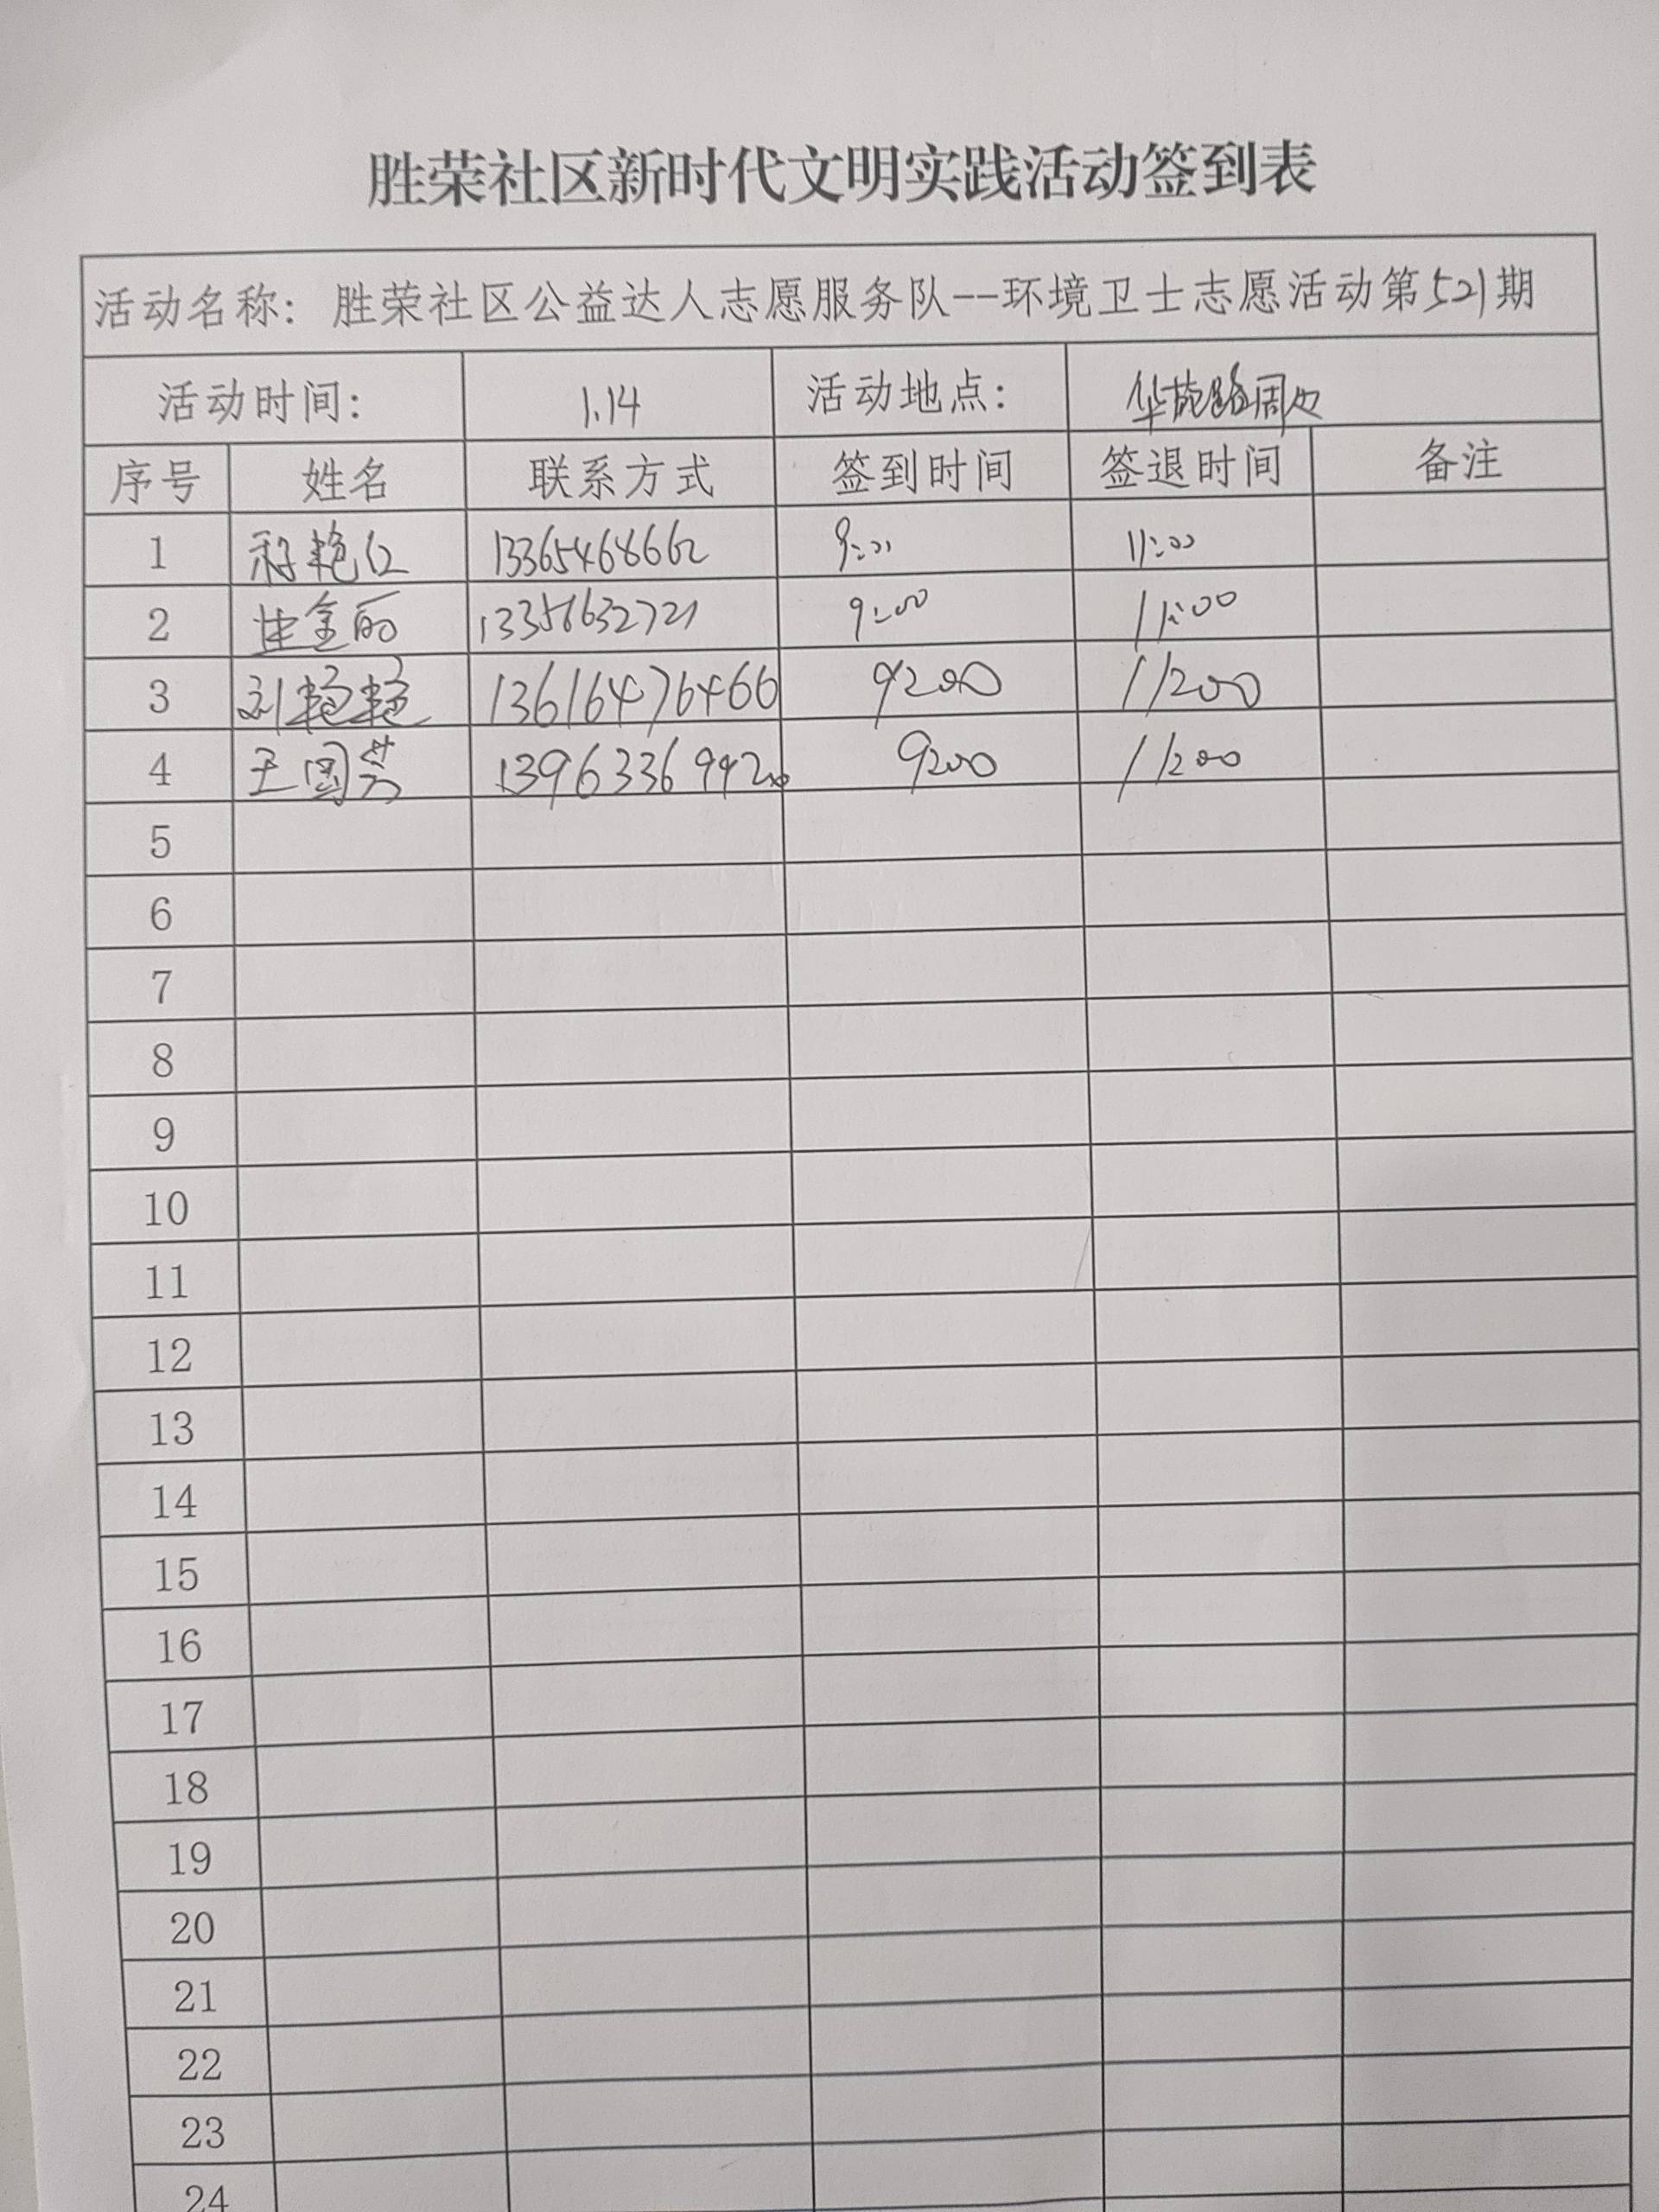 胜荣社区新时代文明实践活动签到表
活动名称：胜荣社区公益达人志愿服务队--环境卫士志愿活动第521期
活动时间： 1.14 活动地点： 路周边
序号 姓名 联系方式 签到时间 签退时间 备注
1 13365468662 9:00 11:00
2 金丽 13356632721 9:00 11:00
3 刘艳艳 13616476466 9:00 11:00
4 王国芳 1396336942 9:00 11:00
5
6
7
8
9
10
11
12
13
14
15
16
17
18
19
20
21
22
23
24